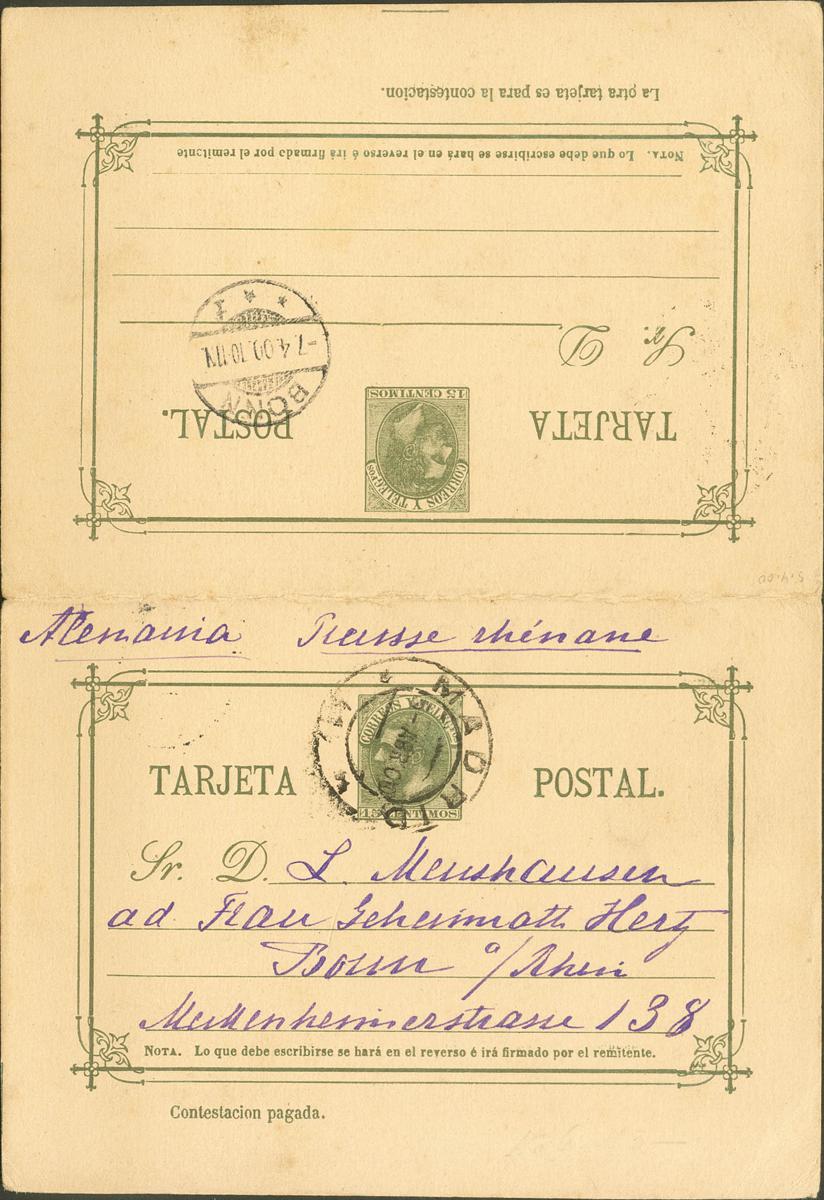 La otra tarjeta es para la contestacion.
NOTA. Lo que debe escribirse se hará en el reverso é irá firmado por el remitente
Sr. D
TARJETA POSTAL.
15 CENTIMOS
CORREOS Y TELEGFOS
BONN
-7.4.00.10-11V.
* * 1
5.4.00
Alemania Prusse rhénane
MADRID
ABR 00
CORREOS Y TELEGFOS
15 CENTIMOS
TARJETA POSTAL.
Sr. D. L. Menshausen
ad Frau Geheimrath Hertz
Bonn a/Rhein
Meckenheimerstrasse 138
NOTA. Lo que debe escribirse se hará en el reverso é irá firmado por el remitente.
Contestacion pagada.